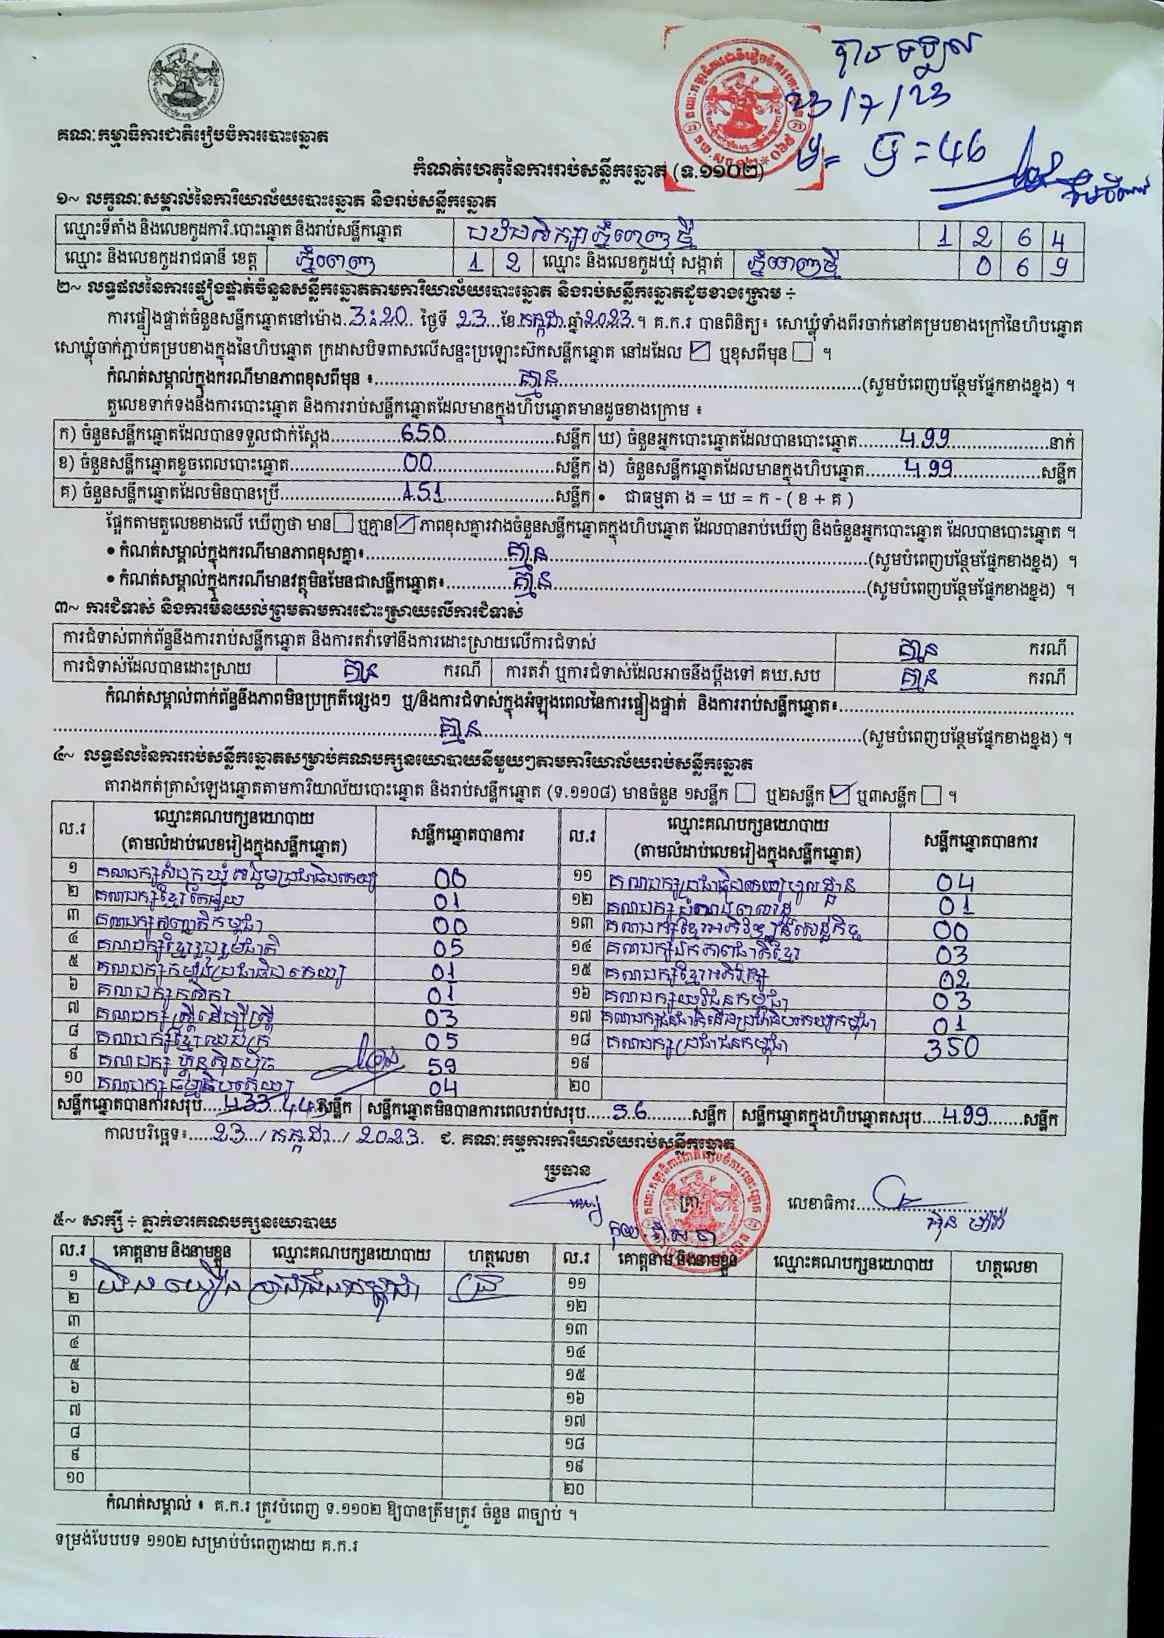 បានទទួល
23/7/23
ម៉ = ប្រ = 46
គណៈកម្មាធិការជាតិរៀបចំការបោះឆ្នោត
កំណត់ហេតុនៃការរាប់សន្លឹកឆ្នោត (ទ.១១០២)
១~ លក្ខណៈសម្គាល់នៃការិយាល័យបោះឆ្នោត និងរាប់សន្លឹកឆ្នោត
ឈ្មោះទីតាំង និងលេខកូដការិ.បោះឆ្នោត និងរាប់សន្លឹកឆ្នោត ភ្នំពេញថ្មី 1 2 6 4
ឈ្មោះ និងលេខកូដរាជធានី ខេត្ត ភ្នំពេញ 1 2 ឈ្មោះ និងលេខកូដឃុំ សង្កាត់ ភ្នំពេញថ្មី 0 6 9
២~ លទ្ធផលនៃការផ្ទៀងផ្ទាត់ចំនួនសន្លឹកឆ្នោតតាមការិយាល័យបោះឆ្នោត និងរាប់សន្លឹកឆ្នោតដូចខាងក្រោម ÷
ការផ្ទៀងផ្ទាត់ចំនួនសន្លឹកឆ្នោតនៅម៉ោង.3:20 ថ្ងៃទី 23...ខែ.កក្កដា.ឆ្នាំ2023.។ គ.ក.រ បានពិនិត្យ៖ សោឃ្លុំទាំងពីរចាក់នៅគម្របខាងក្រៅនៃហិបឆ្នោត
សោឃ្លុំចាក់ភ្ជាប់គម្របខាងក្នុងនៃហិបឆ្នោត ក្រដាសបិទពាសលើសន្ទះប្រឡោះស៊កសន្លឹកឆ្នោត នៅដដែល ☑ ឬខុសពីមុន ☐ ។
កំណត់សម្គាល់ក្នុងករណីមានភាពខុសពីមុន ៖......គ្មាន......(សូមបំពេញបន្ថែមផ្នែកខាងខ្នង) ។
តួលេខទាក់ទងនឹងការបោះឆ្នោត និងការរាប់សន្លឹកឆ្នោតដែលមានក្នុងហិបឆ្នោតមានដូចខាងក្រោម ៖
ក) ចំនួនសន្លឹកឆ្នោតដែលបានទទួលជាក់ស្តែង......650......សន្លឹក ឃ) ចំនួនអ្នកបោះឆ្នោតដែលបានបោះឆ្នោត......499......នាក់
ខ) ចំនួនសន្លឹកឆ្នោតខូចពេលបោះឆ្នោត......00......សន្លឹក ង) ចំនួនសន្លឹកឆ្នោតដែលមានក្នុងហិបឆ្នោត......499......សន្លឹក
គ) ចំនួនសន្លឹកឆ្នោតដែលមិនបានប្រើ......151......សន្លឹក • ជាធម្មតា ង = ឃ = ក - ( ខ + គ )
ផ្អែកតាមតួលេខខាងលើ ឃើញថា មាន ☐ ឬគ្មាន ☑ ភាពខុសគ្នារវាងចំនួនសន្លឹកឆ្នោតក្នុងហិបឆ្នោត ដែលបានរាប់ឃើញ និងចំនួនអ្នកបោះឆ្នោត ដែលបានបោះឆ្នោត ។
• កំណត់សម្គាល់ក្នុងករណីមានភាពខុសគ្នា៖......គ្មាន......(សូមបំពេញបន្ថែមផ្នែកខាងខ្នង) ។
• កំណត់សម្គាល់ក្នុងករណីមានវត្ថុមិនមែនជាសន្លឹកឆ្នោត៖......គ្មាន......(សូមបំពេញបន្ថែមផ្នែកខាងខ្នង) ។
៣~ ការជំទាស់ និងការមិនយល់ព្រមតាមការដោះស្រាយលើការជំទាស់
ការជំទាស់ពាក់ព័ន្ធនឹងការរាប់សន្លឹកឆ្នោត និងការតវ៉ាទៅនឹងការដោះស្រាយលើការជំទាស់ គ្មាន ករណី
ការជំទាស់ដែលបានដោះស្រាយ គ្មាន ករណី ការតវ៉ា ឬការជំទាស់ដែលអាចនឹងប្តឹងទៅ គឃ.សប គ្មាន ករណី
កំណត់សម្គាល់ពាក់ព័ន្ធនឹងភាពមិនប្រក្រតីផ្សេងៗ ឬ/និងការជំទាស់ក្នុងអំឡុងពេលនៃការផ្ទៀងផ្ទាត់ និងការរាប់សន្លឹកឆ្នោត៖......
......គ្មាន......(សូមបំពេញបន្ថែមផ្នែកខាងខ្នង) ។
៤~ លទ្ធផលនៃការរាប់សន្លឹកឆ្នោតសម្រាប់គណបក្សនយោបាយនីមួយៗតាមការិយាល័យរាប់សន្លឹកឆ្នោត
តារាងកត់ត្រាសំឡេងឆ្នោតតាមការិយាល័យបោះឆ្នោត និងរាប់សន្លឹកឆ្នោត (ទ.១១០៨) មានចំនួន ១សន្លឹក ☐ ឬ២សន្លឹក ☑ ឬ៣សន្លឹក ☐ ។
ល.រ ឈ្មោះគណបក្សនយោបាយ (តាមលំដាប់លេខរៀងក្នុងសន្លឹកឆ្នោត) សន្លឹកឆ្នោតបានការ ល.រ ឈ្មោះគណបក្សនយោបាយ (តាមលំដាប់លេខរៀងក្នុងសន្លឹកឆ្នោត) សន្លឹកឆ្នោតបានការ
១ គណបក្សសំបុកឃ្មុំសង្គមប្រជាធិបតេយ្យ 00 ១១ គណបក្សប្រជាធិបតេយ្យមូលដ្ឋាន 04
២ គណបក្សខ្មែរតែមួយ 01 ១២ គណបក្សដំណាងរាស្ត្រ 01
៣ គណបក្សសញ្ជាតិកម្ពុជា 00 ១៣ គណបក្សខ្មែរអភិវឌ្ឍន៍សេដ្ឋកិច្ច 00
៤ គណបក្សខ្មែររួបរួមជាតិ 05 ១៤ គណបក្សឯកភាពជាតិខ្មែរ 03
៥ គណបក្សកម្ពុជាប្រជាធិបតេយ្យ 01 ១៥ គណបក្សខ្មែរអភិរក្ស 02
៦ គណបក្សកសិករ 01 ១៦ គណបក្សយុវជនកម្ពុជា 03
៧ គណបក្សស្ត្រីដើម្បីស្ត្រី 03 ១៧ គណបក្សជនជាតិដើមប្រជាធិបតេយ្យកម្ពុជា 01
៨ គណបក្សខ្មែរឈប់ក្រ 05 ១៨ គណបក្សប្រជាជនកម្ពុជា 350
៩ គណបក្ស ហ៊្វុនស៊ិនប៉ិច 59 ១៩
១០ គណបក្សធម្មាធិបតេយ្យ 04 ២០
សន្លឹកឆ្នោតបានការសរុប....433....443សន្លឹក សន្លឹកឆ្នោតមិនបានការពេលរាប់សរុប.....56.........សន្លឹក សន្លឹកឆ្នោតក្នុងហិបឆ្នោតសរុប....499.......សន្លឹក
កាលបរិច្ឆេទ៖.....23.../កក្កដា../2023. ជ. គណៈកម្មការការិយាល័យរាប់សន្លឹកឆ្នោត
ប្រធាន គ្រា លេខាធិការ
៥~ សាក្សី ÷ ភ្នាក់ងារគណបក្សនយោបាយ
ល.រ គោត្តនាម និងនាមខ្លួន ឈ្មោះគណបក្សនយោបាយ ហត្ថលេខា ល.រ គោត្តនាម និងនាមខ្លួន ឈ្មោះគណបក្សនយោបាយ ហត្ថលេខា
១ ប្រជាជនកម្ពុជា ១១
២ ១២
៣ ១៣
៤ ១៤
៥ ១៥
៦ ១៦
៧ ១៧
៨ ១៨
៩ ១៩
១០ ២០
កំណត់សម្គាល់ ៖ គ.ក.រ ត្រូវបំពេញ ទ.១១០២ ឱ្យបានត្រឹមត្រូវ ចំនួន ៣ច្បាប់ ។
ទម្រង់បែបបទ ១១០២ សម្រាប់បំពេញដោយ គ.ក.រ